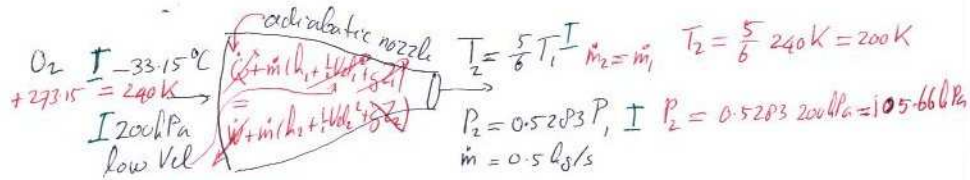 adiabatic nozzle
O₂ I -33.15°C
+273.15 = 240K
I 200kPa
low Vel
Q̇ + ṁ(h₁ + ½Vel₁² + gZ₁)
=
Ẇ + ṁ(h₂ + ½Vel₂² + gZ₂)
T₂ = 5/6 T₁ I ṁ₂ = ṁ₁ T₂ = 5/6 240K = 200K
P₂ = 0.5283 P₁ I P₂ = 0.5283 200kPa = 105.66kPa
ṁ = 0.5 kg/s